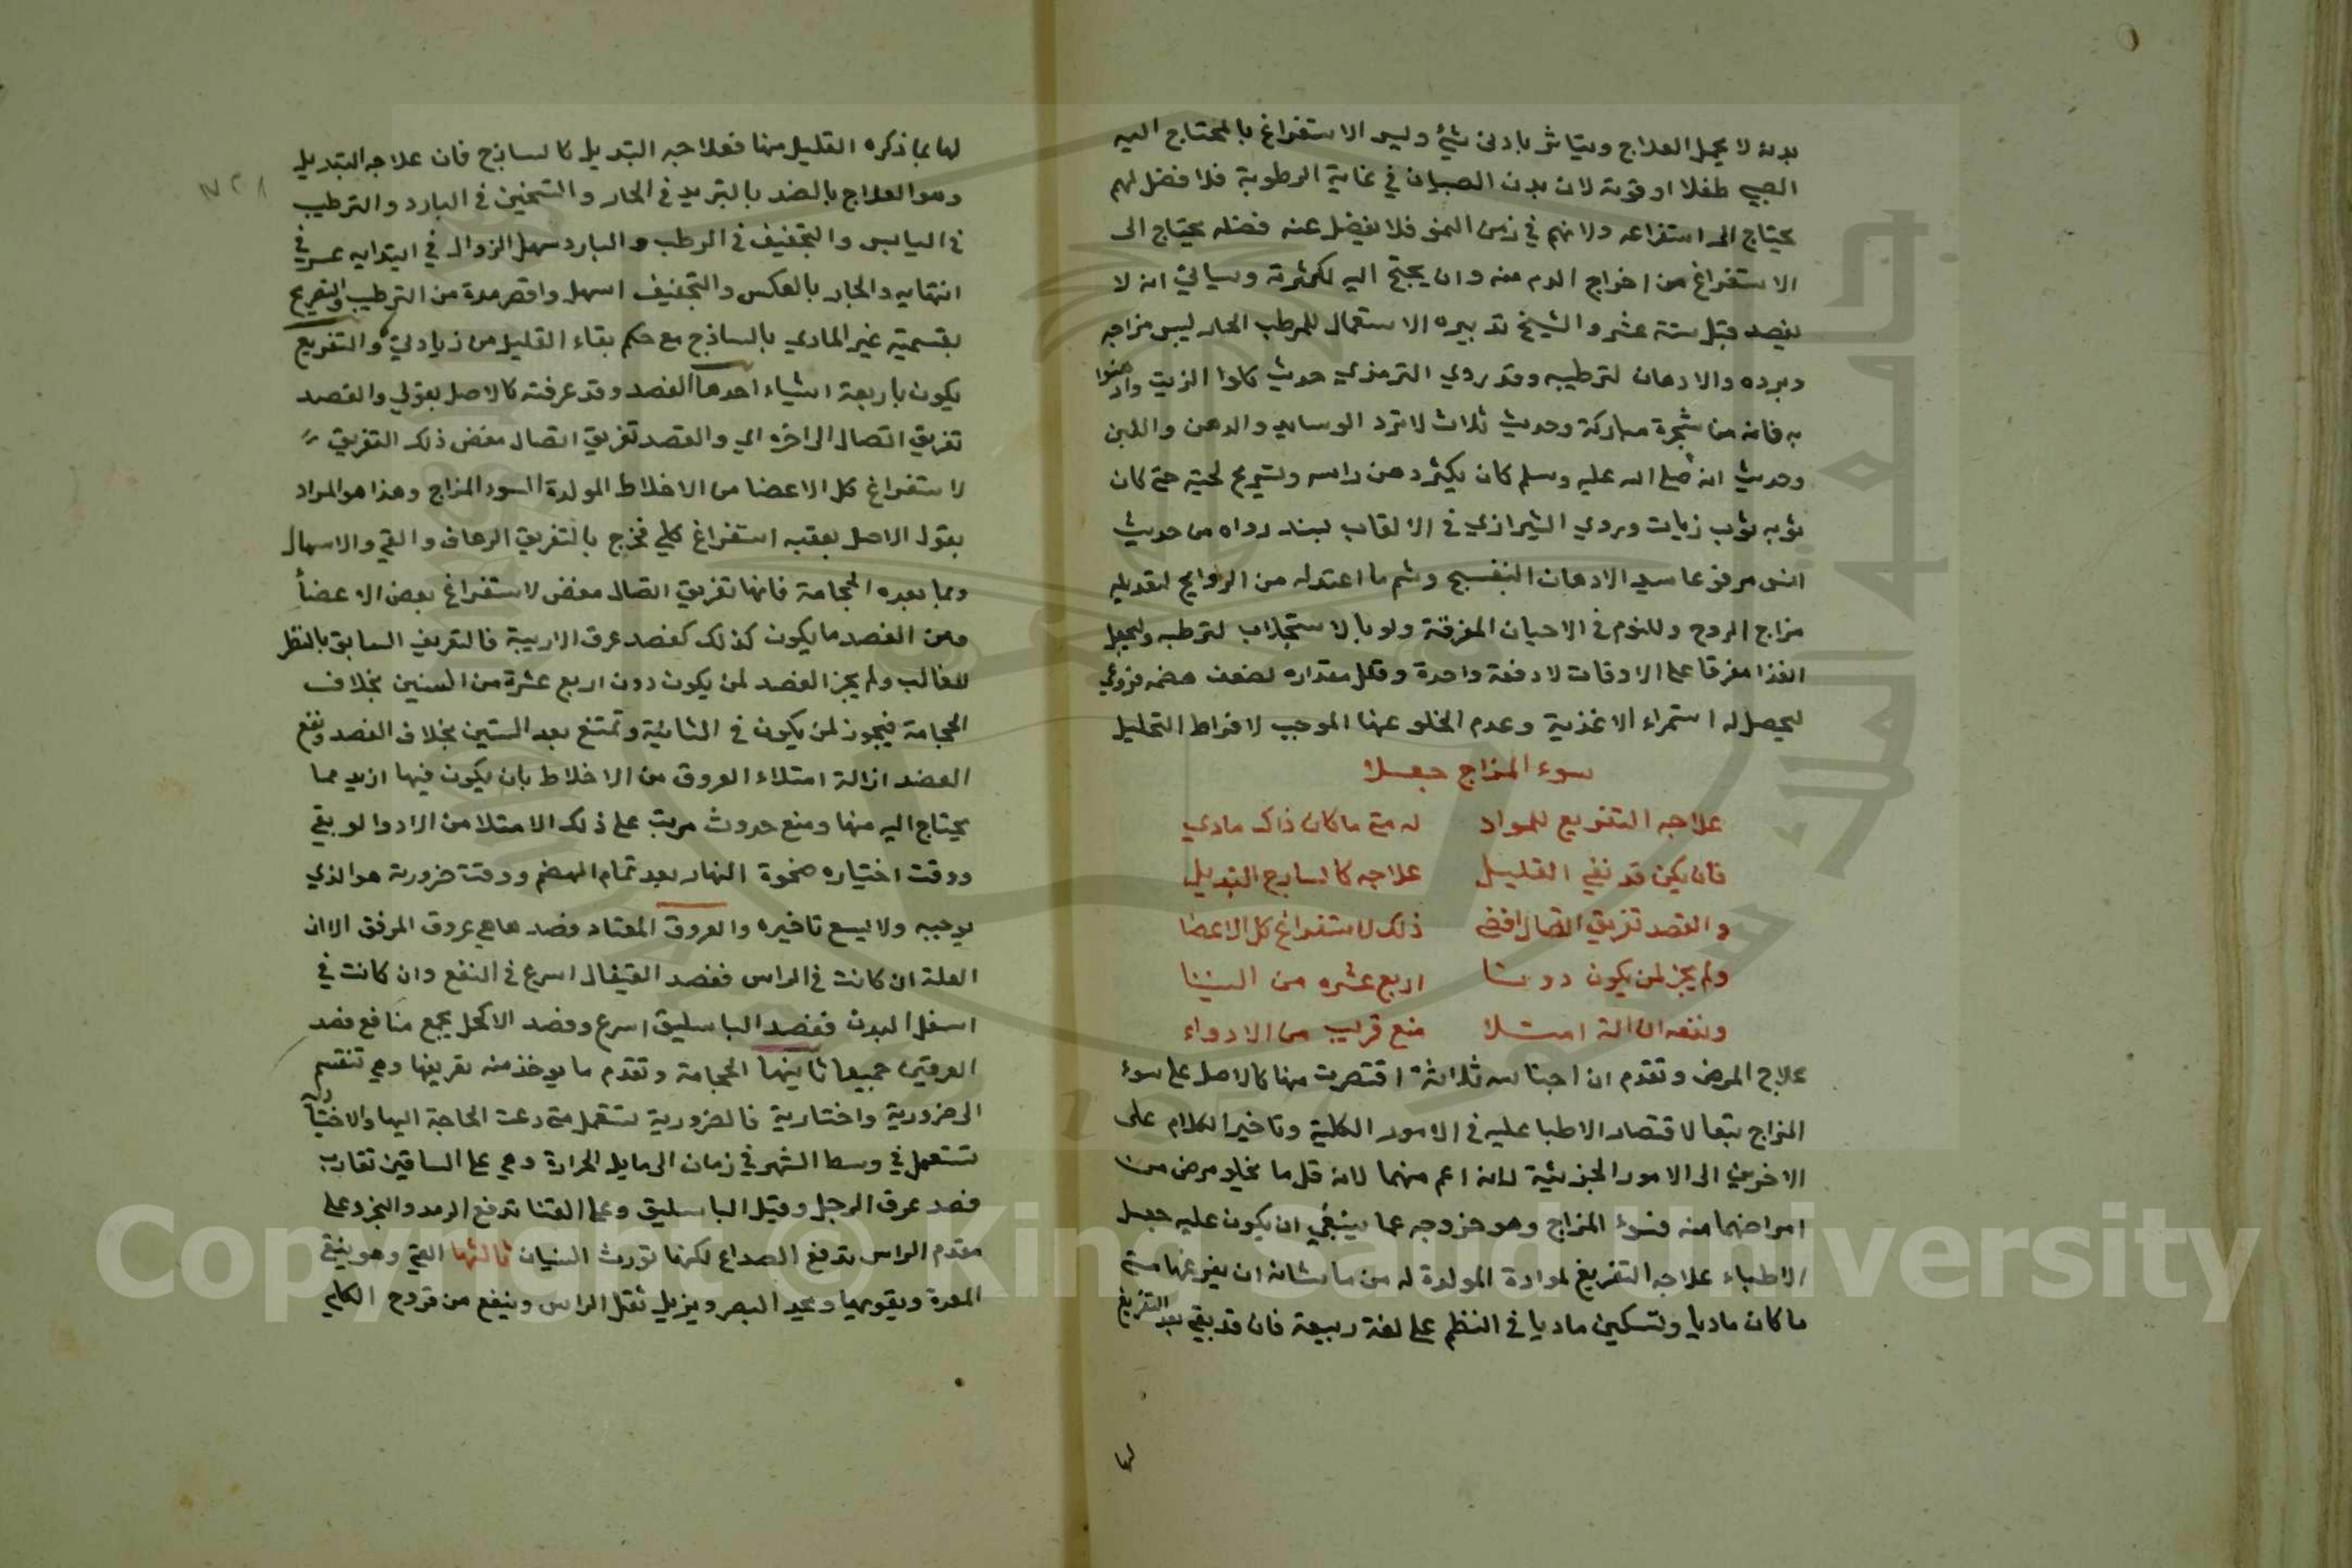 بدنه لا يحمل العلاج ويتاثر بادنى شيء وليس الاستفراغ بالمحتاج اليه
الصبي طفلا او فوته لان بدن الصبيان في غاية الرطوبة فلا فضل لهم
يحتاج الى استفراغه ولانهم في زمن النمو فلا يفضل عنه فضله يحتاج الى
الاستفراغ من اخراج الدم منه وان يحتج اليه لكثرته وسياتي انه لا
يفصد قبل ستة عشر والشيخ تدبيره الاستعمال للمرطب الحار ليبس مزاجه
وبرده والادهان لترطيبه وقد روي الترمذي حديث كلوا الزيت وادهنوا
به فانه من شجرة مباركة وحديث ثلاث لا ترد الوسايد والدهن واللبن
وحديث انه صلى الله عليه وسلم كان يكثر دهن راسه وتسريح لحيته حتى كان
ثوبه ثوب زيات وروي الشيرازي في الالقاب بسند رواه من حديث
انس مرفوعا سيد الادهان البنفسج وشم ما اعتدل من الروايح لتعديله
مزاج الروح وللنوم في الاحيان المفرقة ولو بالاستجلاب لترطبه وليجعل
الغذا مفرقا على الاوقات لا دفعة واحدة وقلل مقداره لضعف هضمه فروعي
ليحصل له استمراء الاغذية وعدم الخلو عنها الموجب لافراط التحليل
سوء المزاج جعلا
علاجه التفريغ للمواد له متى ما كان ذاك مادي
فان يكن قد نفي القليل علاجه كالساذج التبديل
والفصد تفريق اتصال افضى ذلك لاستفراغ كل الاعضا
ولم يجز لمن يكون دونسا اربع عشره من السنينا
ونفعه ازالة امتلا منع قريب من الادواء
علاج المرض وتقدم ان اجناسه ثلاثة اقتصرت منها كالاصل على سوء
المزاج تبعا لاقتصار الاطبا عليه في الامور الكلية وتاخير الكلام على
الاخرين الى الامور الجزئية لانه اعم منهما لانه قل ما يخلو مرض من
امراضهما منه فسوء المزاج وهو خروجه عما ينبغي ان يكون عليه جعل
الاطباء علاجه التفريغ لموادة المولدة له من ما شانه ان يفرغها متى
ما كان ماديا وتسكين ماديا في النظم على لغة ربيعة فان قد بقي بعد التفريغ
لها
لها بما ذكره القليل منها فعلاجه التبديل كالساذج فان علاجه التبديل
وهو العلاج بالضد بالتبريد في الحار والتسخين في البارد والترطيب
في اليابس والتجفيف في الرطب والبارد سهل الزوال في ابتدايه عسر في
انتهايه والحار بالعكس والتجفيف اسهل واقصر مدة من الترطيب والتصريح
بقسمية غير المادي بالساذج مع حكم بقاء القليل من زيادتي والتفريغ
يكون باربعة اشياء احدها الفصد وقد عرفته كالاصل بقولي والفصد
تفريق اتصال الى اخره اي والفصد تفريق اتصال مفض ذلك التفريق
لاستفراغ كل الاعضا من الاخلاط المولدة السوء المزاج وهذا هو المراد
بقول الاصل يعقبه استفراغ كلي فخرج بالتفريق الرعاف والقي والاسهال
وبما بعده الحجامة فانها تفريق اتصال مفض لاستفراغ بعض الاعضأ
ومن الفصد ما يكون كذلك كفصد عرق الاربية فالتعريف السابق بالنظر
للغالب ولم يجز الفصد لمن يكون دون اربع عشرة من السنين بخلاف
الحجامة فيجوز لمن يكون في الثانية وتمتنع بعد الستين بخلاف الفصد ونفع
الفصد ازالة امتلاء العروق من الاخلاط بان يكون فيها ازيد مما
يحتاج اليه منها ومنع حدوث مرتب على ذلك الامتلا من الادوا لو بقي
ووقت اختياره ضحوة النهار بعد تمام الهضم ووقت ضرورته هو الذي
يوجبه ولا يسع تاخيره والعروق المعتاد فصدها هي عروق المرفق الا ان
العلة ان كانت في الراس ففصد القيفال اسرع في النفع وان كانت في
اسفل البدن ففصد الباسليق اسرع وفصد الاكحل يجمع منافع فصد
العرقين جميعا ثانيها الحجامة وتقدم ما يوخذ منه تعريفها وهي تنقسم
الى ضرورية واختارية فالضرورية تستعمل متى دعت الحاجة اليها والاختيارية
تستعمل في وسط الشهر في زمان الى مايل الحرارة وهي على الساقين تقارب
فصد عرق الرجل وقيل الباسليق وعلى القفا تدفع الرمد والبخر وعلى
مقدم الراس تدفع الصداع لكنها تورث النسيان ثالثها القي وهو ينقي
المعدة ويقويها ويحد البصر ويزيل ثقل الراس وينفع من قروح الكلي
Copyright © King Saud University